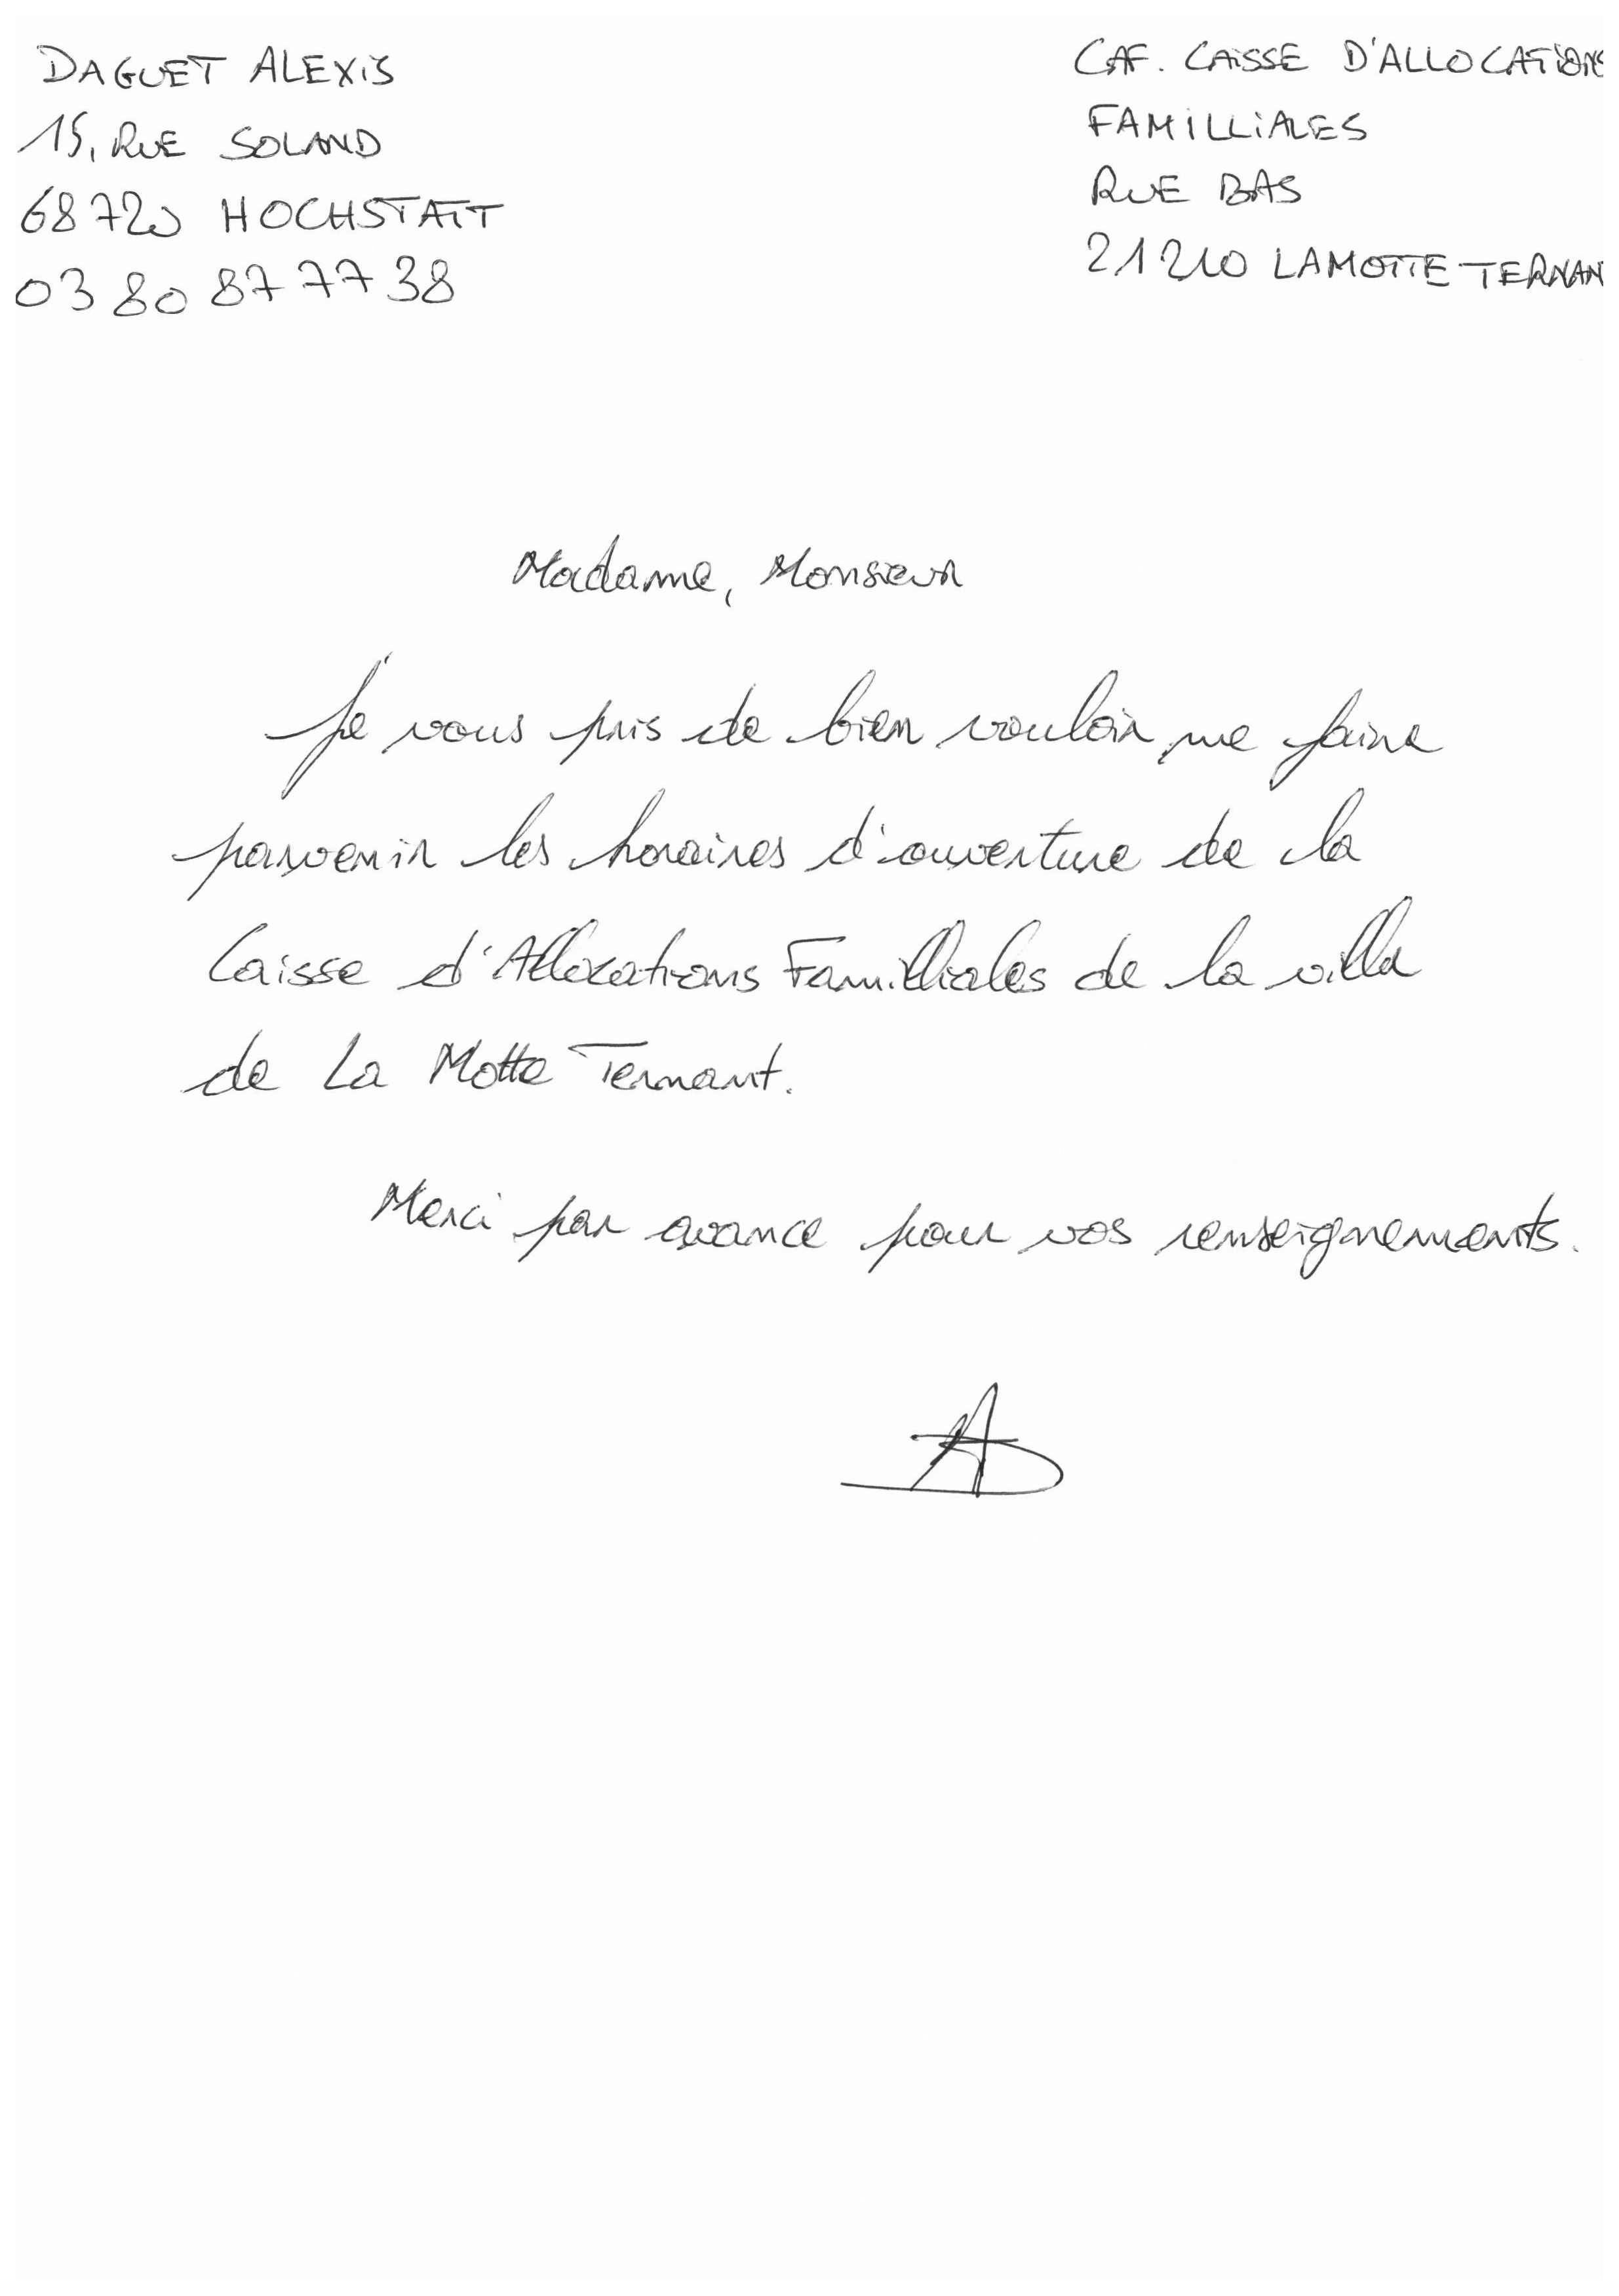 DAGUET ALEXIS
15, RUE SOLAND
68720 HOCHSTATT
03 80 87 77 38
CAF. CAISSE D'ALLOCATIONS
FAMILLIALES
RUE BAS
21210 LAMOTTE-TERNAN
Madame, Monsieur
Je vous pris de bien vouloir me faire
parvenir les horaires d'ouverture de la
Caisse d'Allocations Familliales de la ville
de La Motte Ternant.
Merci par avance pour vos renseignements.